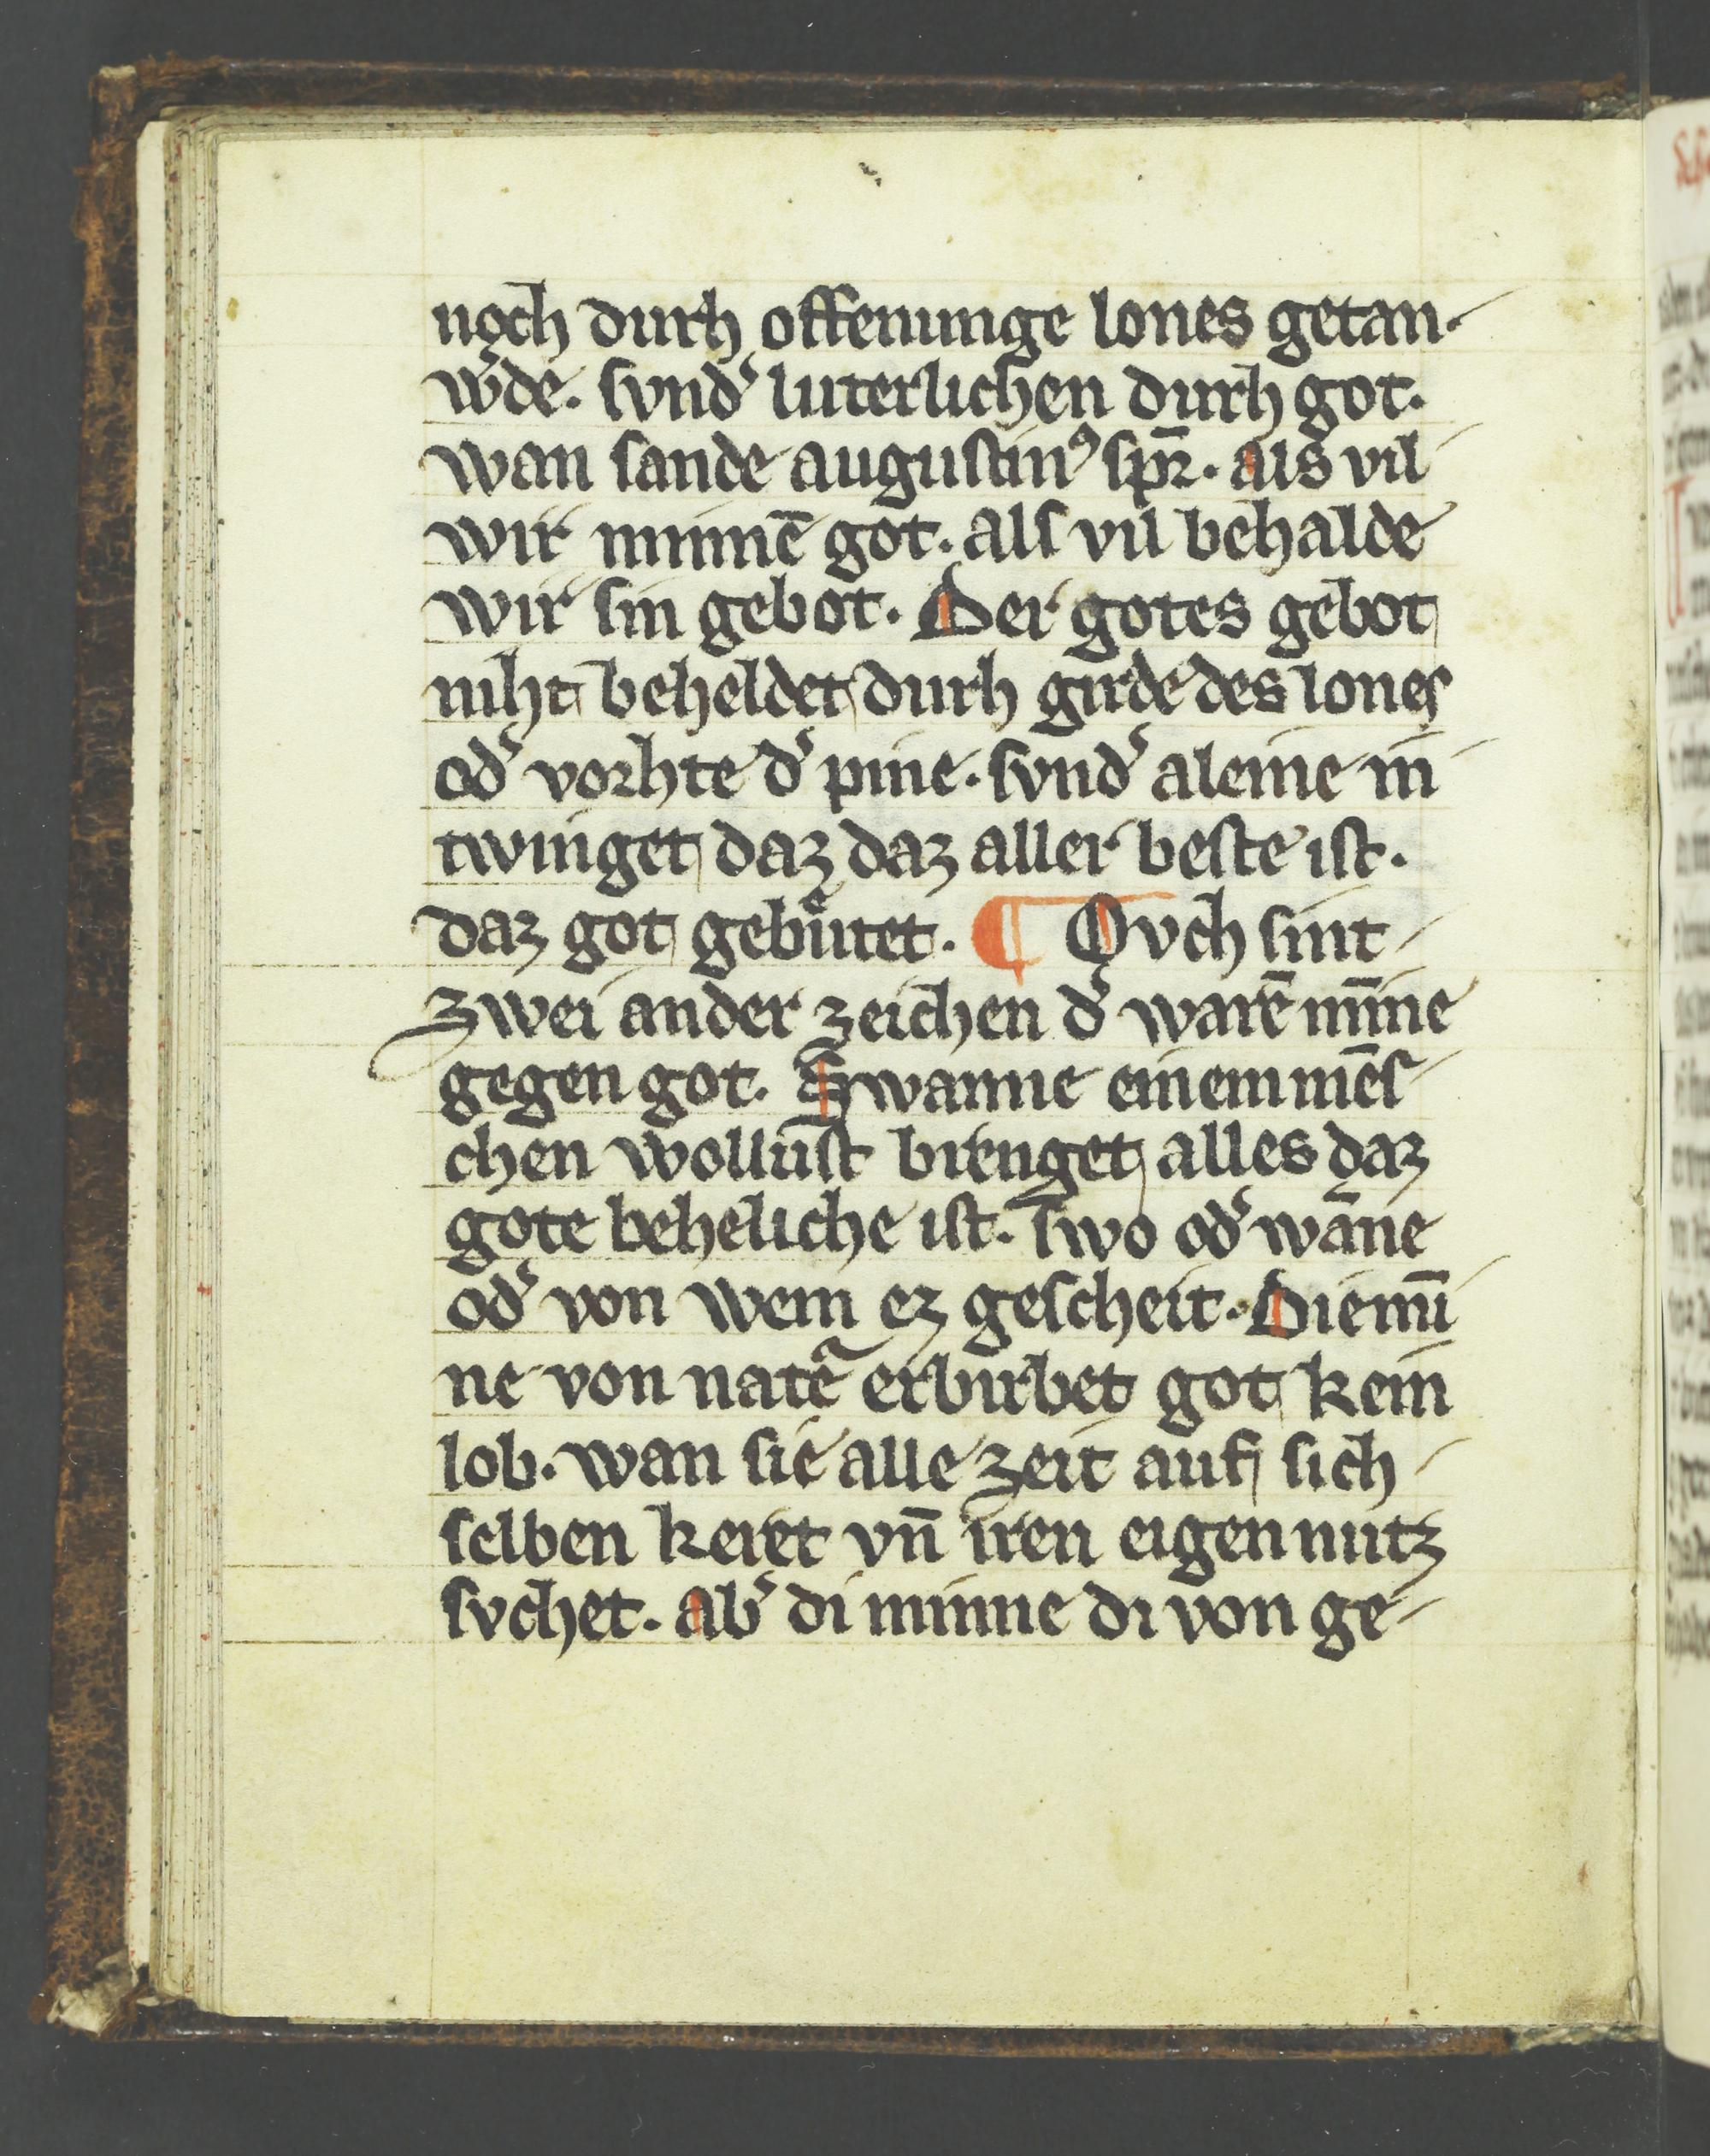 noch durh offenunge lones getan⸗
wͦde. svndˢ luterlichen durh got.
wan sande augustinꝰ spꝛ̄. als vil
wir minnē got. alſ vil behalde
wir sin gebot. Der gotes gebot
niht beheldet durh girde des lones
odˢ vorhte dˢ pine. svndˢ aleine in
twinget daz daz aller beste ist.
daz got gebuͤtet. ¶ Ovch sint
zwei ander zeichen dˢ warē mīne
gegen got. Swanne einem mēſ
chen wollust bringet alles daz
gote beheliche ist. swo odˢ wāne
odˢ von wem ez gescheit. Die mī
ne von natᵉ̄ erbirbet got kein
lob. wan sie alle zeit auf sich
selben keret vn̄ iren eigen nutz
svchet. abˢ di minne di von ge⸗